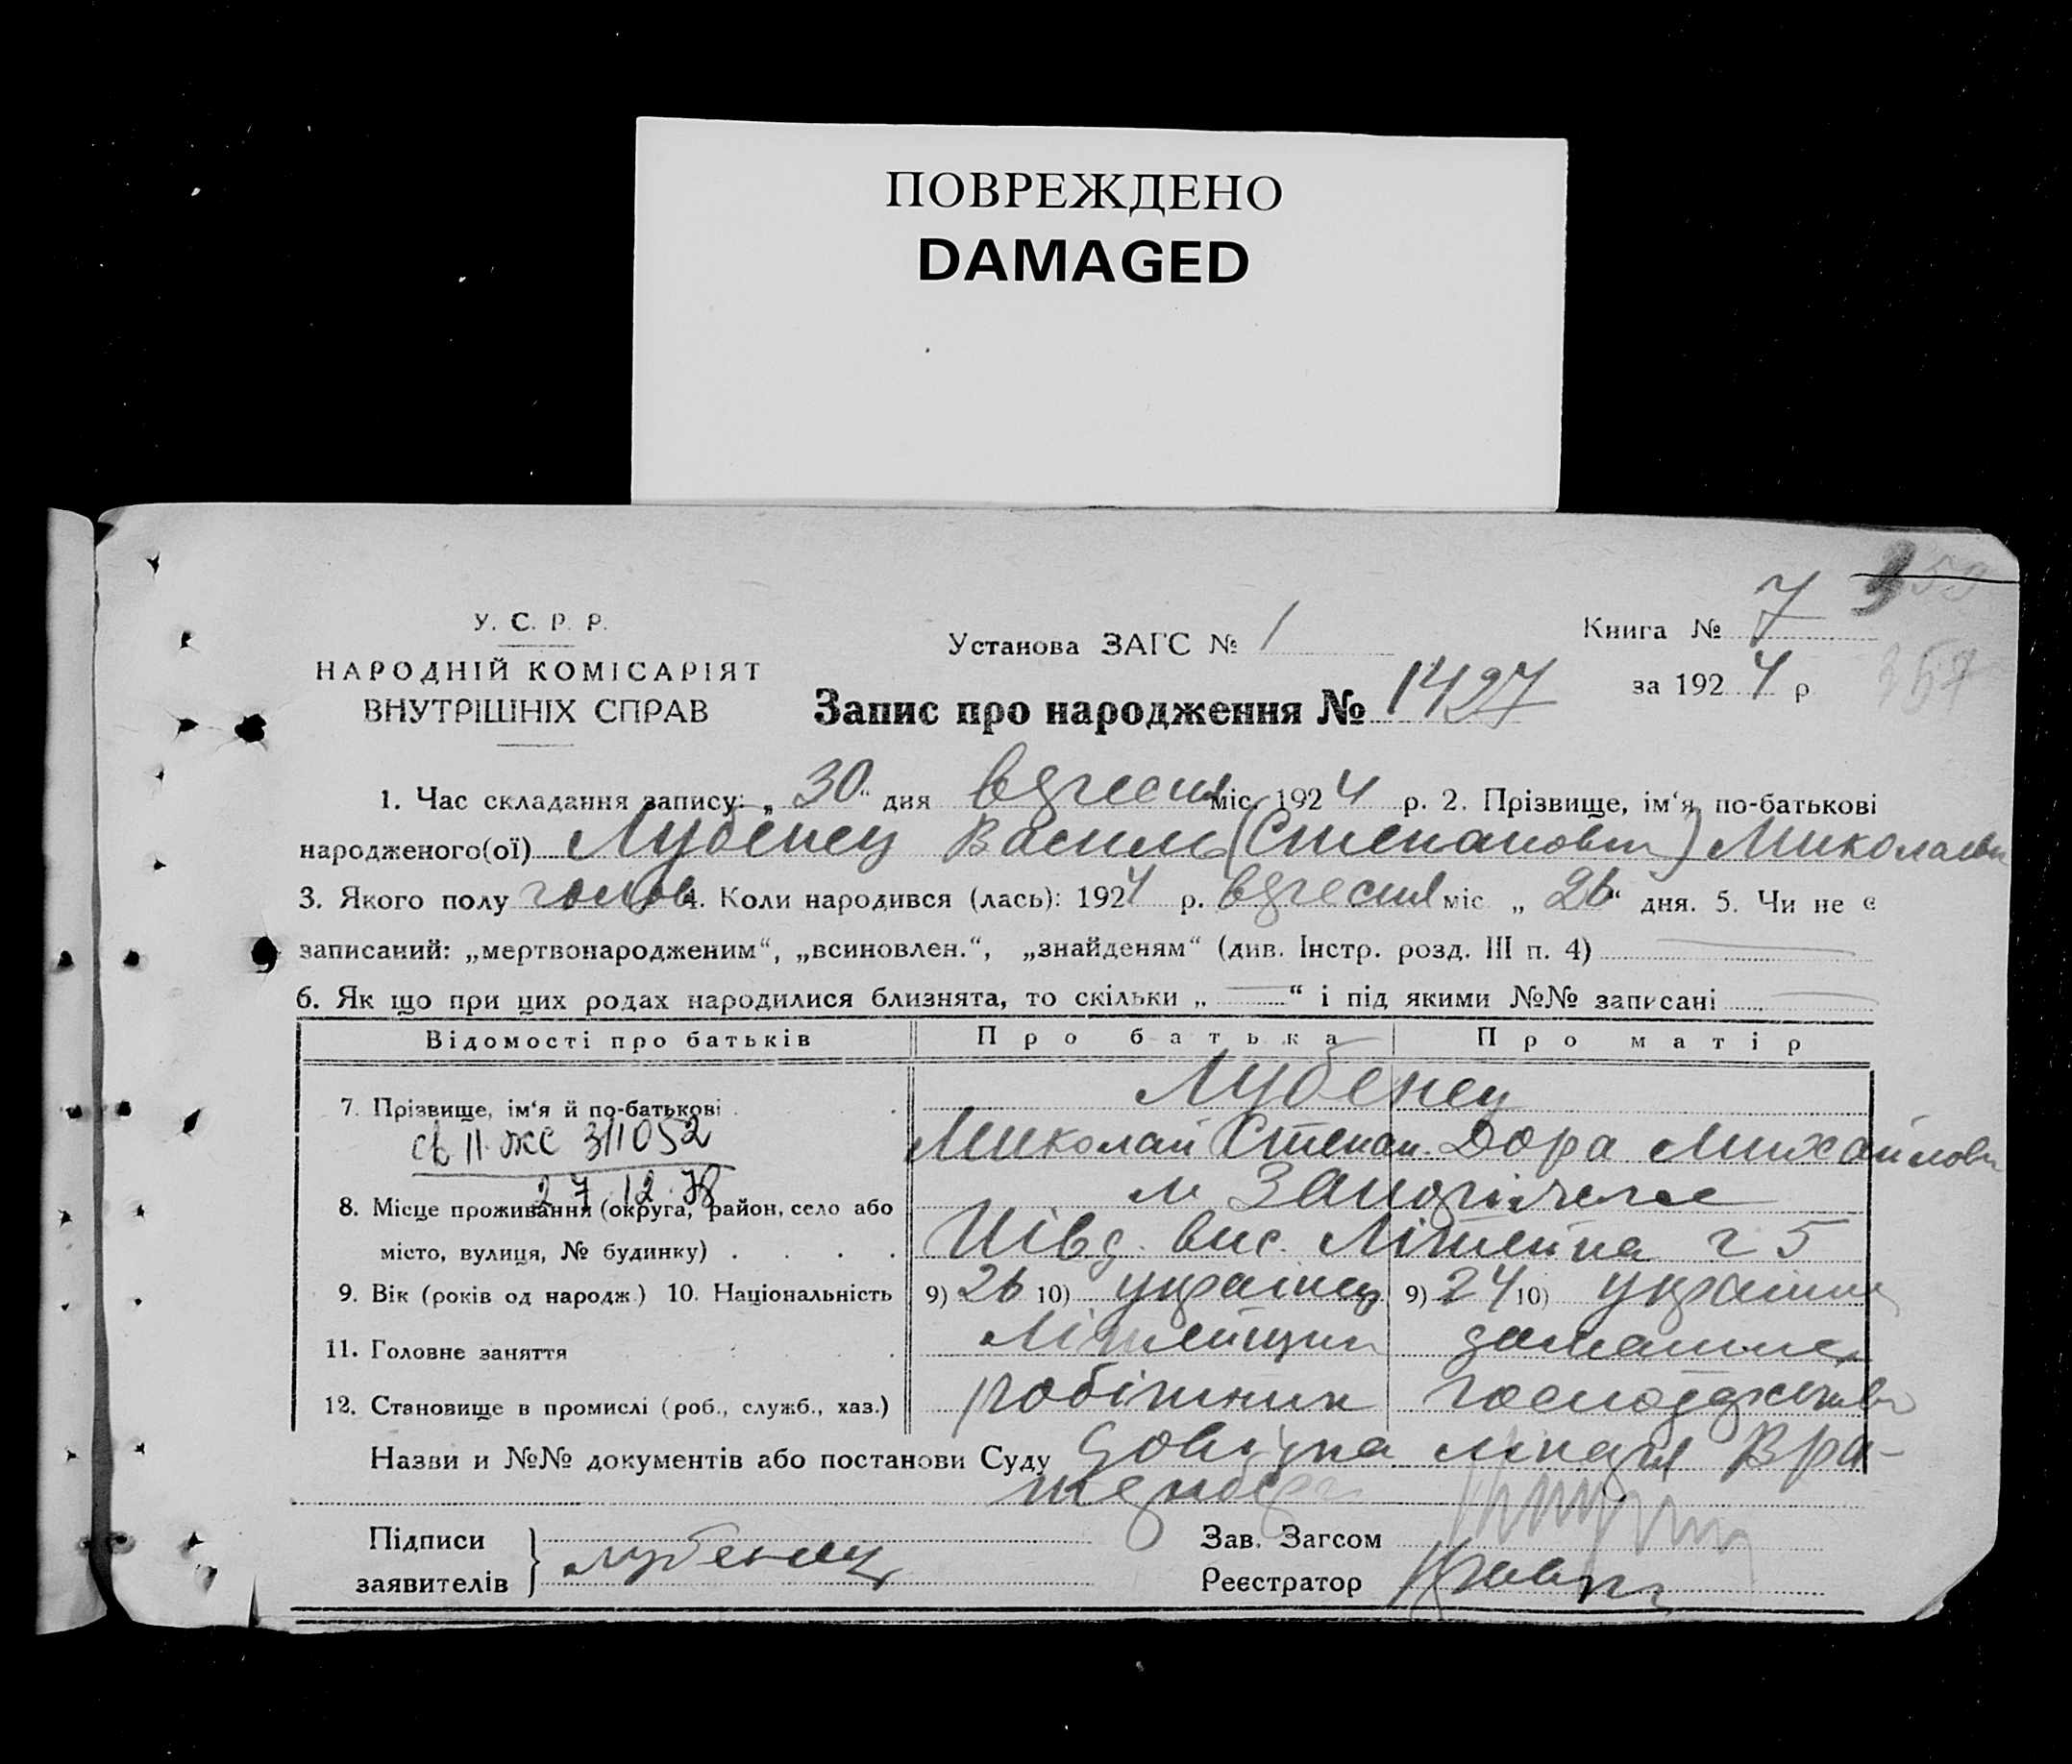 ПОВРЕЖДЕНО
DAMAGED
У. С. Р. Р.
НАРОДНІЙ КОМІСАРІЯТ
ВНУТРІШНІХ СПРАВ
Установа ЗАГС № 1
Книга № 7
за 1924 р
357
Запис про народження № 1427
1. Час складання запису: „30“ дня вересня міс. 1924 р. 2. Прізвище, ім‘я, по-батькові
народженого(ої) Лубенец Василь (Степанович) Миколаєв
3. Якого полу чолов 4. Коли народився (лась): 1924 р. вересня міс „26“ дня. 5. Чи не є
записаний: „мертвонародженим“, „всиновлен.“, „знайденям“ (див. Інстр. розд. III п. 4)
6. Як що при цих родах народилися близнята, то скільки „—“ і під якими №№ записані
Відомості про батьків Про батька Про матір
7. Прізвище, ім‘я й по-батькові Лубенец
Миколай Степан. Дора Михайлов
св II-жс 311052
27.12.78
8. Місце проживання (округа, район, село або м Запоріжжя
місто, вулиця, № будинку) Півд. вис. Літейна 5
9. Вік (років од народж.) 10. Національність 9) 26 10) українец 9) 24 10) україн
11. Головне заняття Літейщик домашнє
12. Становище в промислі (роб., служб., хаз.) робітник господарство
Назви и №№ документів або постанови Суду Довідка
Підписи
заявителів } лубенец
Зав. Загсом
Реєстратор